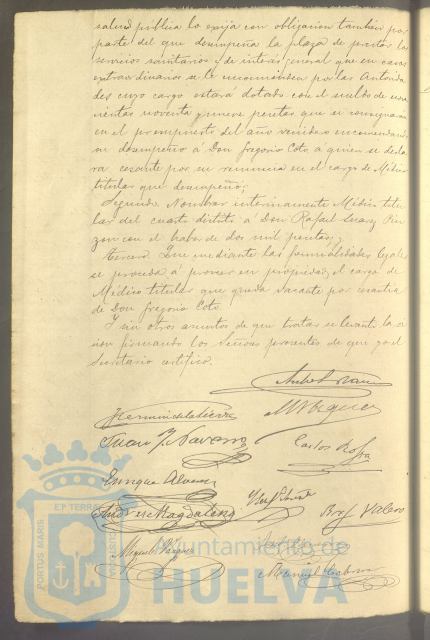 salud pública lo exija con obligacion tambien por
parte del que desempeña la plaza de prestar los
servicios sanitarios y de interés general que en casos
extraordinarios se le encomienden por las Autorida
des cuyo cargo estará dotado con el sueldo de
cientas noventa y nueve pesetas que se consignarán
en el presupuesto del año venidero encomendando
su desempeño á Don Gregorio Coto á quien se decla
ra cesante por su renuncia en el cargo de Médico
titular que desempeñó;
Segundo. Nombrar interinamente Médico titu
lar del cuarto distrito á Don Rafael Suarez Pin
zon con el haber de dos mil pesetas; y
Tercero. Que mediante las formalidades legales
se proceda á proveer en propiedad el cargo de
Médico titular que queda vacante por cesantía
de Don Gregorio Coto.
Y sin otros asuntos de que tratar se levantó la se
sion firmando los Señores presentes de que yo el
Secretario certifico.
Juan J. Navarro
Carlos
Enrique Alvarez
Andres Magdaleno
Raf Valero
Miguel Vazquez
Manuel
PORTUS MARIS ET TERRAE
Ayuntamiento de
HUELVA